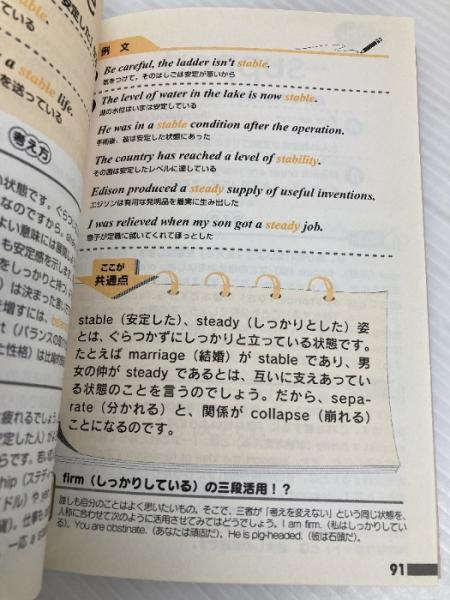 安定した
a stable life.
を送っている
考え方
例文
Be careful, the ladder isn't stable.
気をつけて、そのはしごは安定が悪いから
The level of water in the lake is now stable.
湖の水位はいまは安定している
He was in a stable condition after the operation.
手術後、彼は安定した状態にあった
The country has reached a level of stability.
その国は安定したレベルに達している
Edison produced a steady supply of useful inventions.
エジソンは有用な発明品を着実に生み出した
I was relieved when my son got a steady job.
息子が定職に就いてくれてほっとした
ここが
共通点
stable（安定した）、steady（しっかりとした）姿
とは、ぐらつかずにしっかりと立っている状態です。
たとえば marriage（結婚）が stable であり、男
女の仲が steady であるとは、互いに支えあってい
る状態のことを言うのでしょう。だから、sepa-
rate（分かれる）と、関係が collapse（崩れる）
ことになるのです。
firm（しっかりしている）の三段活用！？
誰しも自分のことはよく思いたいもの。そこで、三者が「考えを変えない」という同じ状態を、
人称に合わせて次のように活用させてみてはどうでしょう。I am firm.（私はしっかりしてい
る）. You are obstinate.（あなたは頑固だ）. He is pig-headed.（彼は石頭だ）.
91